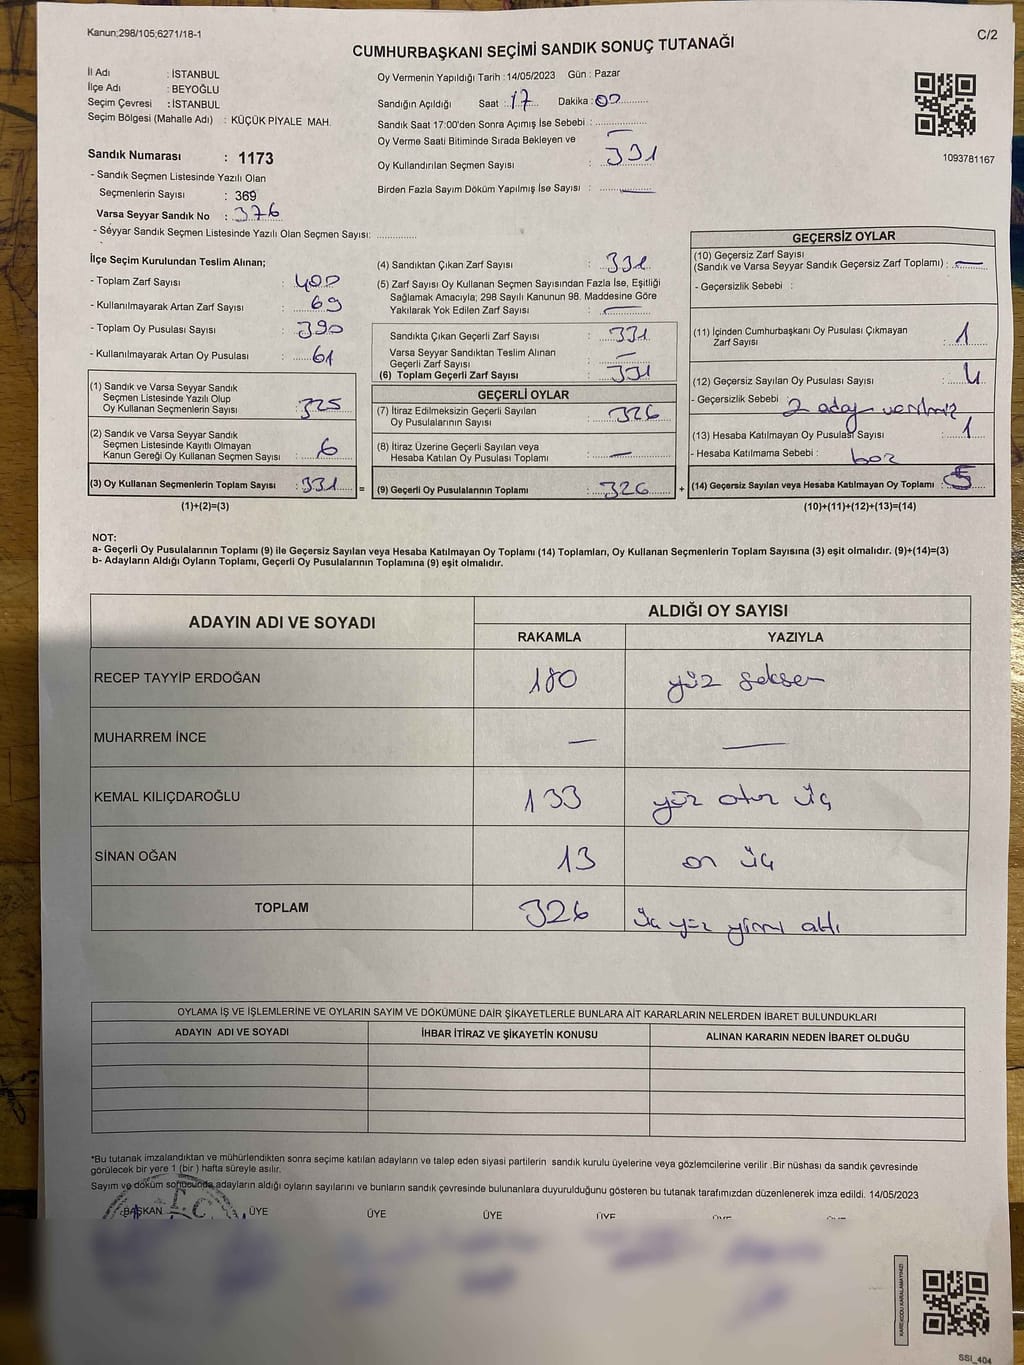 Kanun;298/105;6271/18-1
C/2
CUMHURBAŞKANI SEÇİMİ SANDIK SONUÇ TUTANAĞI
İl Adı : İSTANBUL
İlçe Adı : BEYOĞLU
Seçim Çevresi : İSTANBUL
Seçim Bölgesi (Mahalle Adı) : KÜÇÜK PİYALE MAH.
Sandık Numarası : 1173
- Sandık Seçmen Listesinde Yazılı Olan
Seçmenlerin Sayısı : 369
Varsa Seyyar Sandık No : 376
- Seyyar Sandık Seçmen Listesinde Yazılı Olan Seçmen Sayısı:
Oy Vermenin Yapıldığı Tarih : 14/05/2023 Gün : Pazar
Sandığın Açıldığı Saat : 17 Dakika : 00
Sandık Saat 17:00'den Sonra Açımış İse Sebebi :
Oy Verme Saati Bitiminde Sırada Bekleyen ve
Oy Kullandırılan Seçmen Sayısı : 331
Birden Fazla Sayım Döküm Yapılmış İse Sayısı : —
1093781167
İlçe Seçim Kurulundan Teslim Alınan;
- Toplam Zarf Sayısı : 400
- Kullanılmayarak Artan Zarf Sayısı : 69
- Toplam Oy Pusulası Sayısı : 390
- Kullanılmayarak Artan Oy Pusulası : 61
(1) Sandık ve Varsa Seyyar Sandık
Seçmen Listesinde Yazılı Olup
Oy Kullanan Seçmenlerin Sayısı : 325
(2) Sandık ve Varsa Seyyar Sandık
Seçmen Listesinde Kayıtlı Olmayan
Kanun Gereği Oy Kullanan Seçmen Sayısı : 6
(3) Oy Kullanan Seçmenlerin Toplam Sayısı : 331 =
(1)+(2)=(3)
(4) Sandıktan Çıkan Zarf Sayısı : 331
(5) Zarf Sayısı Oy Kullanan Seçmen Sayısından Fazla İse, Eşitliği
Sağlamak Amacıyla; 298 Sayılı Kanunun 98. Maddesine Göre
Yakılarak Yok Edilen Zarf Sayısı : —
Sandıkta Çıkan Geçerli Zarf Sayısı : 331
Varsa Seyyar Sandıktan Teslim Alınan
Geçerli Zarf Sayısı : —
(6) Toplam Geçerli Zarf Sayısı : 331
GEÇERLİ OYLAR
(7) İtiraz Edilmeksizin Geçerli Sayılan
Oy Pusulalarının Sayısı : 326
(8) İtiraz Üzerine Geçerli Sayılan veya
Hesaba Katılan Oy Pusulası Toplamı : —
(9) Geçerli Oy Pusulalarının Toplamı : 326 +
GEÇERSİZ OYLAR
(10) Geçersiz Zarf Sayısı
(Sandık ve Varsa Seyyar Sandık Geçersiz Zarf Toplamı) : —
- Geçersizlik Sebebi :
(11) İçinden Cumhurbaşkanı Oy Pusulası Çıkmayan
Zarf Sayısı : 1
(12) Geçersiz Sayılan Oy Pusulası Sayısı : 4
- Geçersizlik Sebebi : 2 aday
(13) Hesaba Katılmayan Oy Pusulası Sayısı : 1
- Hesaba Katılmama Sebebi : boz
(14) Geçersiz Sayılan veya Hesaba Katılmayan Oy Toplamı : 5
(10)+(11)+(12)+(13)=(14)
NOT:
a- Geçerli Oy Pusulalarının Toplamı (9) ile Geçersiz Sayılan veya Hesaba Katılmayan Oy Toplamı (14) Toplamları, Oy Kullanan Seçmenlerin Toplam Sayısına (3) eşit olmalıdır. (9)+(14)=(3)
b- Adayların Aldığı Oyların Toplamı, Geçerli Oy Pusulalarının Toplamına (9) eşit olmalıdır.
ADAYIN ADI VE SOYADI
ALDIĞI OY SAYISI
RAKAMLA YAZIYLA
RECEP TAYYİP ERDOĞAN 180 yüz seksen
MUHARREM İNCE — —
KEMAL KILIÇDAROĞLU 133 yüz otuz üç
SİNAN OĞAN 13 on üç
TOPLAM 326 üç yüz yirmi altı
OYLAMA İŞ VE İŞLEMLERİNE VE OYLARIN SAYIM VE DÖKÜMÜNE DAİR ŞİKAYETLERLE BUNLARA AİT KARARLARIN NELERDEN İBARET BULUNDUKLARI
ADAYIN ADI VE SOYADI İHBAR İTİRAZ VE ŞİKAYETİN KONUSU ALINAN KARARIN NEDEN İBARET OLDUĞU
*Bu tutanak imzalandıktan ve mühürlendikten sonra seçime katılan adayların ve talep eden siyasi partilerin sandık kurulu üyelerine veya gözlemcilerine verilir .Bir nüshası da sandık çevresinde
görülecek bir yere 1 (bir ) hafta süreyle asılır.
Sayım ve döküm sonucunda adayların aldığı oyların sayılarını ve bunların sandık çevresinde bulunanlara duyurulduğunu gösteren bu tutanak tarafımızdan düzenlenerek imza edildi. 14/05/2023
T.C
BAŞKAN ÜYE ÜYE ÜYE ÜYE
KAREKODU KARALAMAYINIZ!
SSI_404